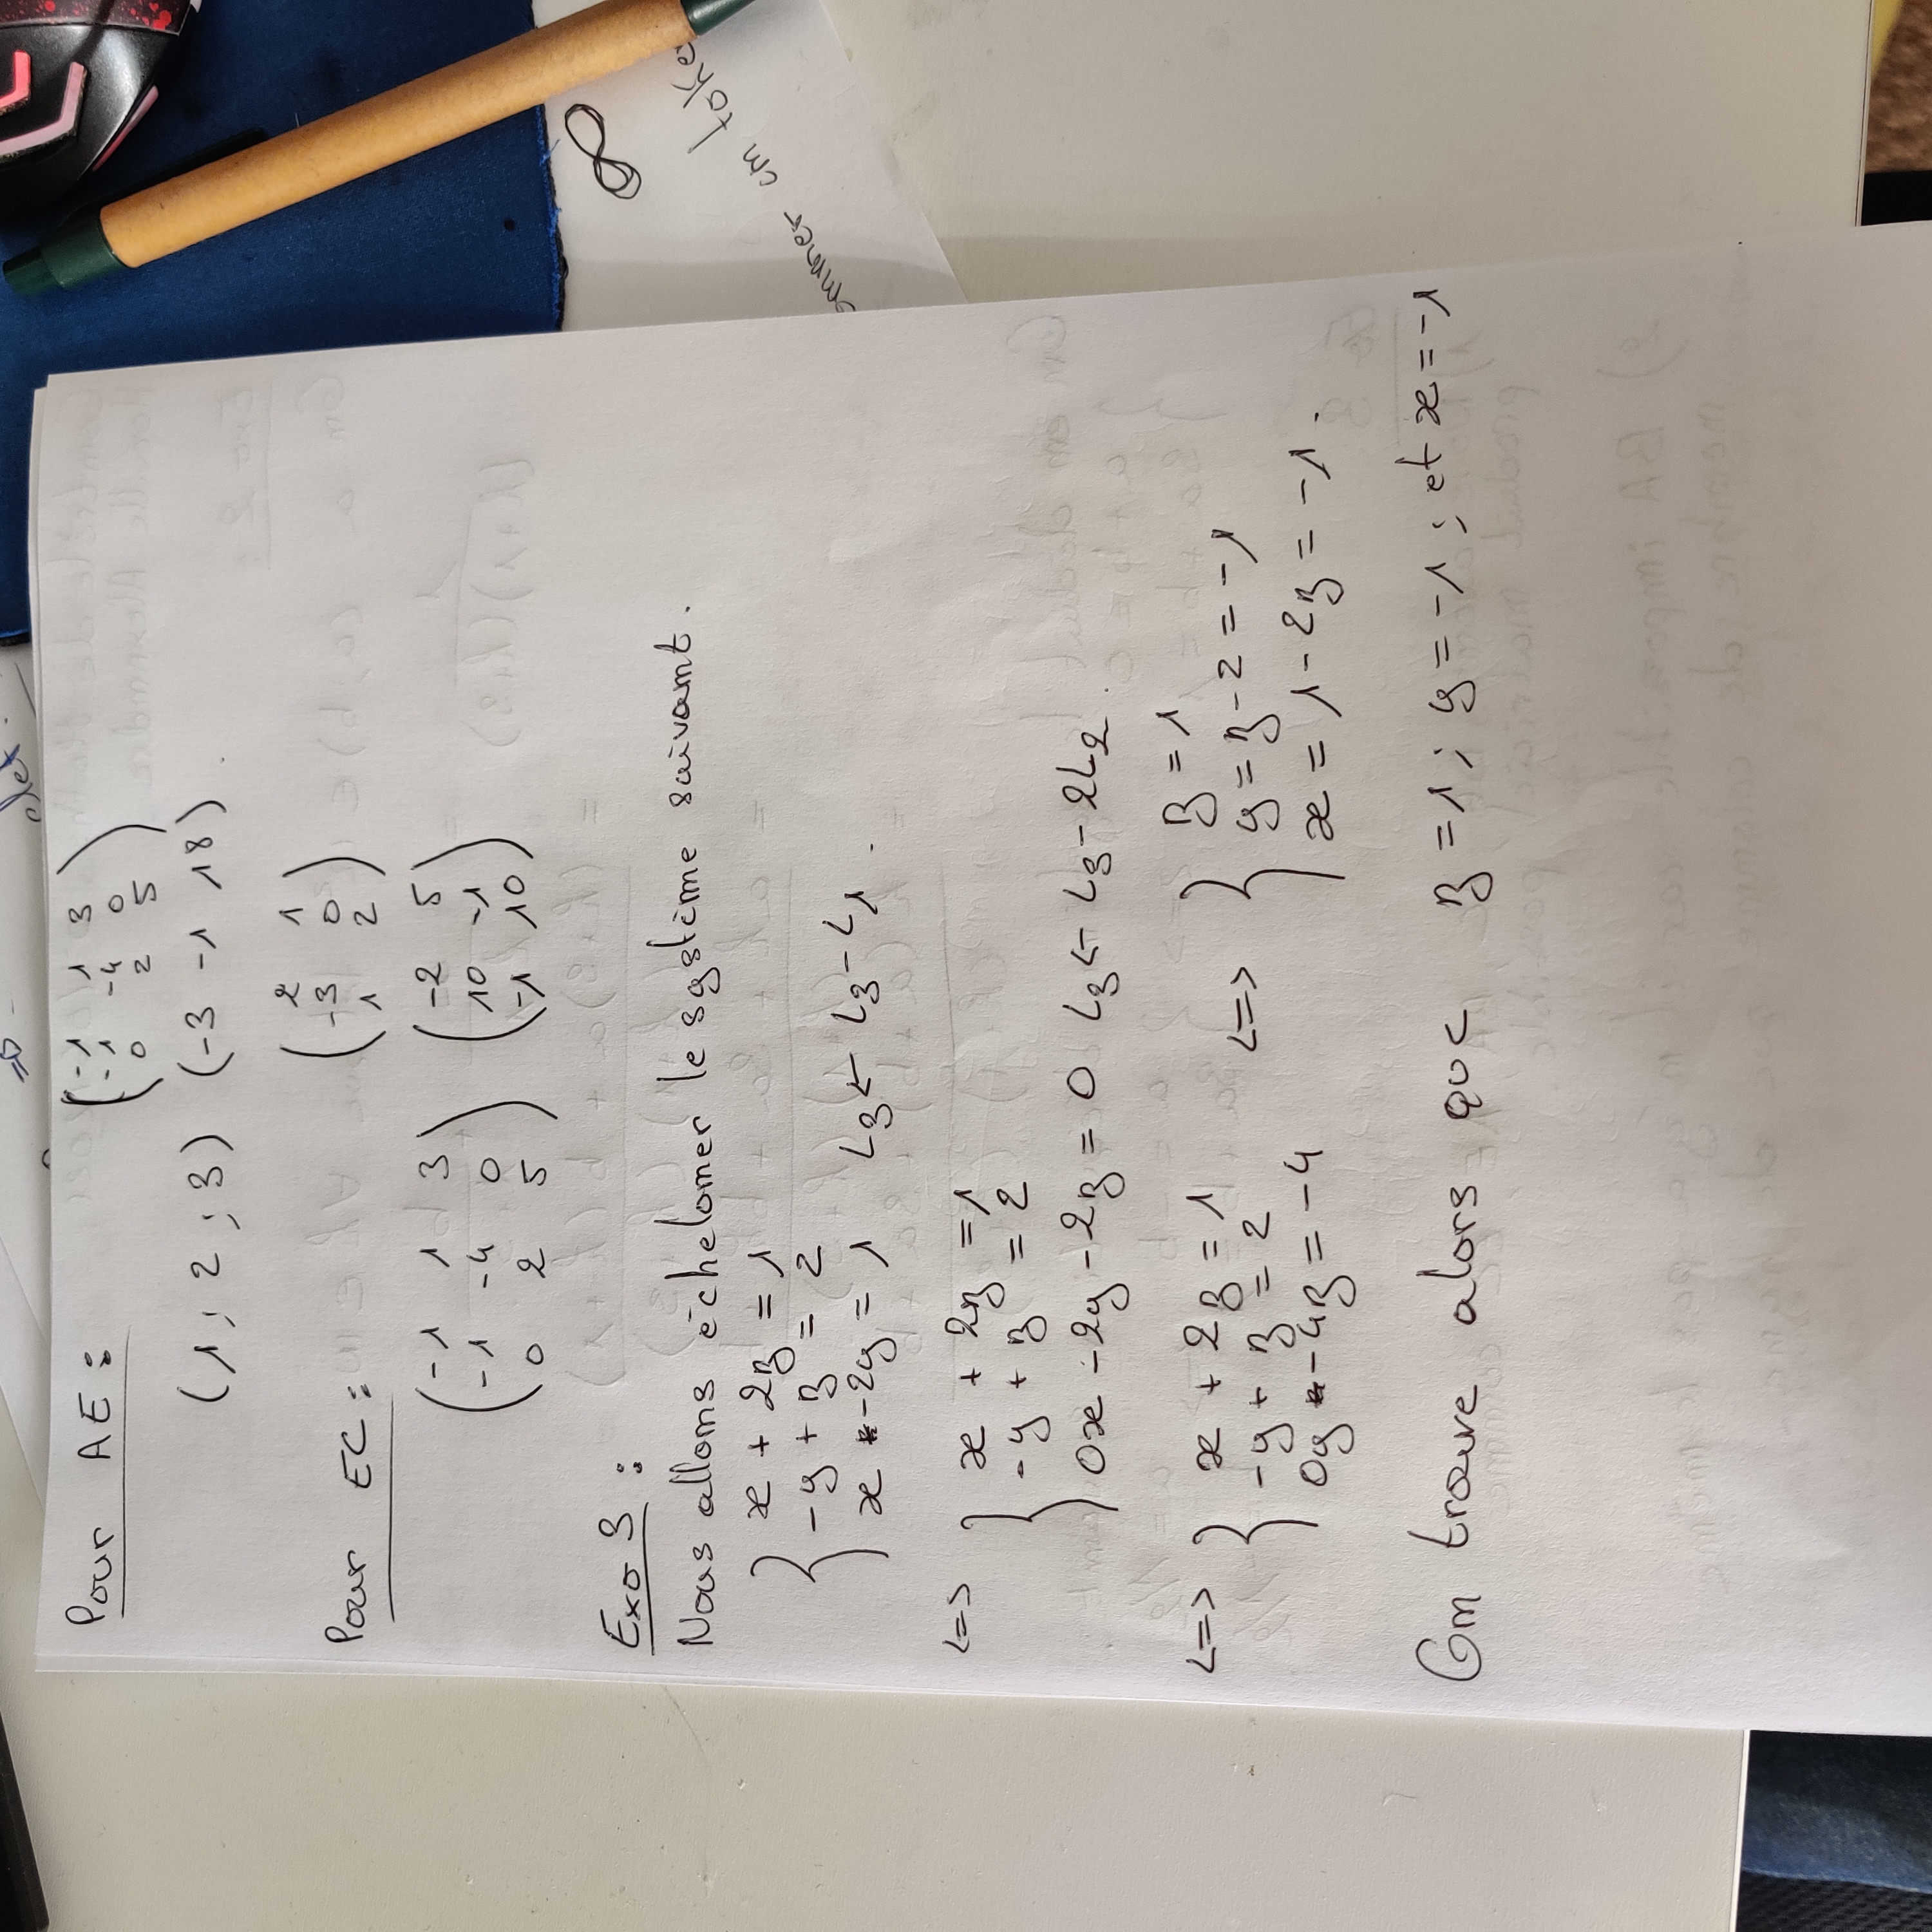 =>
Pour AE :
-1 1 3
-1 -4 0
0 2 5
(1 ; 2 ; 3) (-3 -1 18)
Pour EC :
2 1
-3 0
1 2
-1 1 3 -2 5
-1 -4 0 10 -1
0 2 5 -1 10
Exo 3 :
Nous allons échelonner le système suivant.
x + 2z = 1
-y + z = 2
x -2y = 1 L3 ← L3 - L1 .
<=>
x + 2z = 1
-y + z = 2
0x - 2y - 2z = 0 L3 ← L3 - 2L2 .
<=> x + 2z = 1
-y + z = 2
0y - 4z = -4
<=> z = 1
y = z - 2 = -1
x = 1 - 2z = -1 .
On trouve alors que z = 1 ; y = -1 ; et x = -1
∞